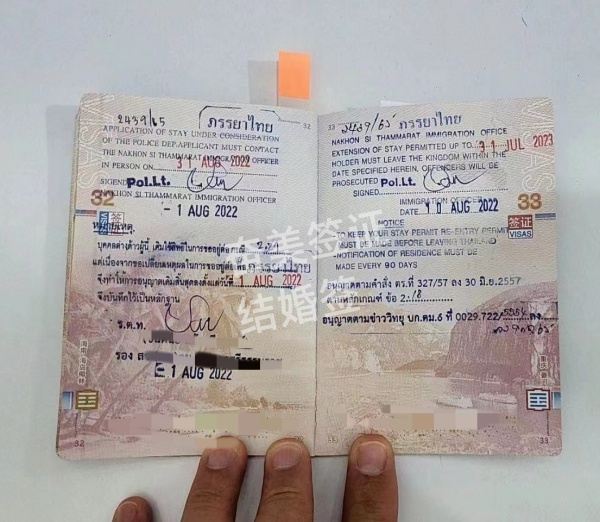 2439/65
ภรรยาไทย
32
APPLICATION OF STAY UNDER CONSIDERATION
OF THE POLICE DEP. APPLICANT MUST CONTACT
THE NAKHON SI THAMMARAT IMMIGRATION OFFICER
IN PERSON ON 31 AUG 2022
SIGNED Pol.Lt.
NAKHON SI THAMMARAT IMMIGRATION OFFICER
- 1 AUG 2022
32
签证
หมายเหตุ
บุคคลต่างด้าวผู้นี้
แต่เนื่องจากขอเปลี่ยนเหตุผลในการขออยู่ ภรรยาไทย
จึงทำให้การอนุญาตเดิมสิ้นสุดลงตั้งแต่วันที่ 1 AUG 2022
จึงบันทึกไว้เป็นหลักฐาน
ร.ต.ท.
รอง
1 AUG 2022
32
2439/65 ภรรยาไทย
33
NAKHON SI THAMMARAT IMMIGRATION OFFICE
EXTENSION OF STAY PERMITTED UP TO 31 JUL 2023
HOLDER MUST LEAVE THE KINGDOM WITHIN THE
DATE SPECIFIED HEREIN, OFFENDERS WILL BE
PROSECUTED Pol.Lt.
SIGNED
IMMIGRATION OFFICER
DATE 10 AUG 2022
33
签证
VISAS
NOTICE
TO KEEP YOUR STAY PERMIT RE-ENTRY PERMIT
MUST BE MADE BEFORE LEAVING THAILAND
NOTIFICATION OF RESIDENCE MUST BE
MADE EVERY 90 DAYS
อนุญาตตามคำสั่ง ตร.ที่ 327/57 ลง 30 มิ.ย.2557
ตามหลักเกณฑ์ ข้อ 2.18
อนุญาตตามข่าววิทยุ บก.ตม.6 ที่ 0029.722/ ลง
33
美签证
结婚